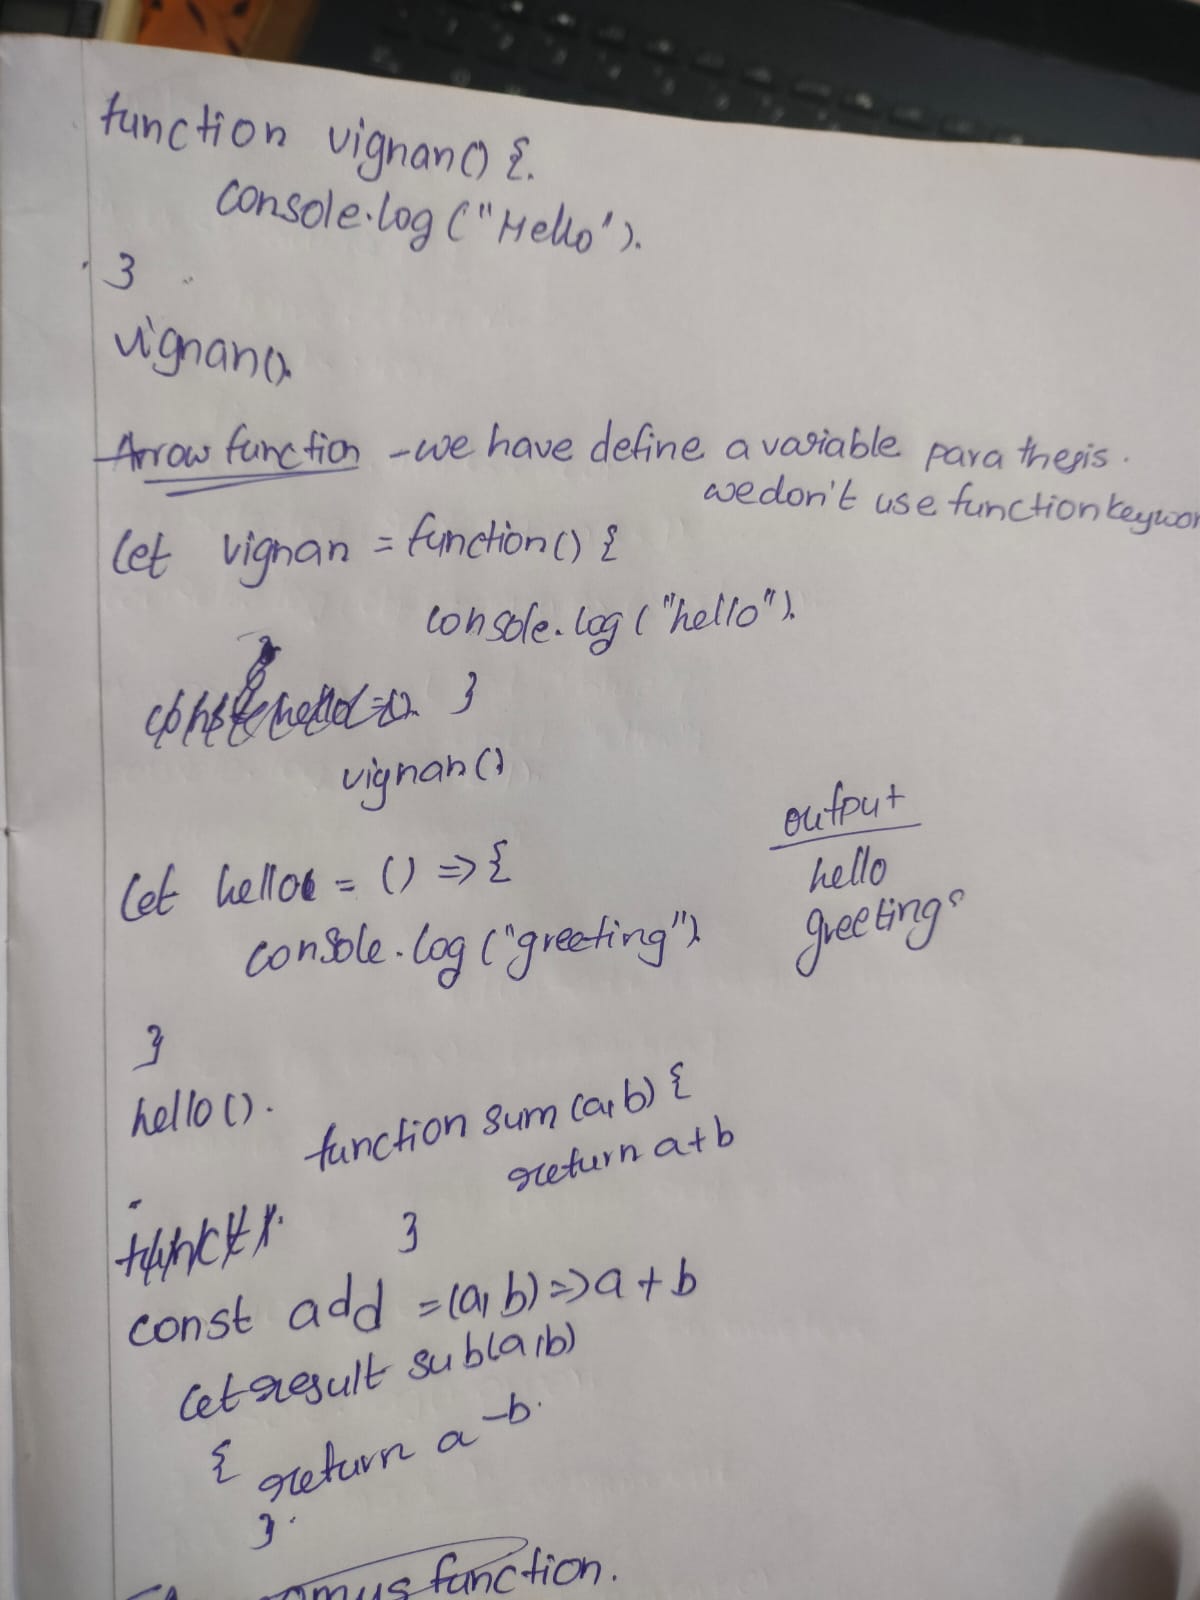 function vignan() {.
console.log ("Hello").
}
vignan().
Arrow function - we have define a variable para thesis.
we don't use function keywor
let vignan = function() {
console.log ("hello").
}
vignan()
output
hello
greetings
let hello = () => {
console.log ("greeting").
}
hello().
function sum (a, b) {
return a+b
}
const add = (a, b) => a + b
let result sub(a, b)
{ return a -b.
}.
function.